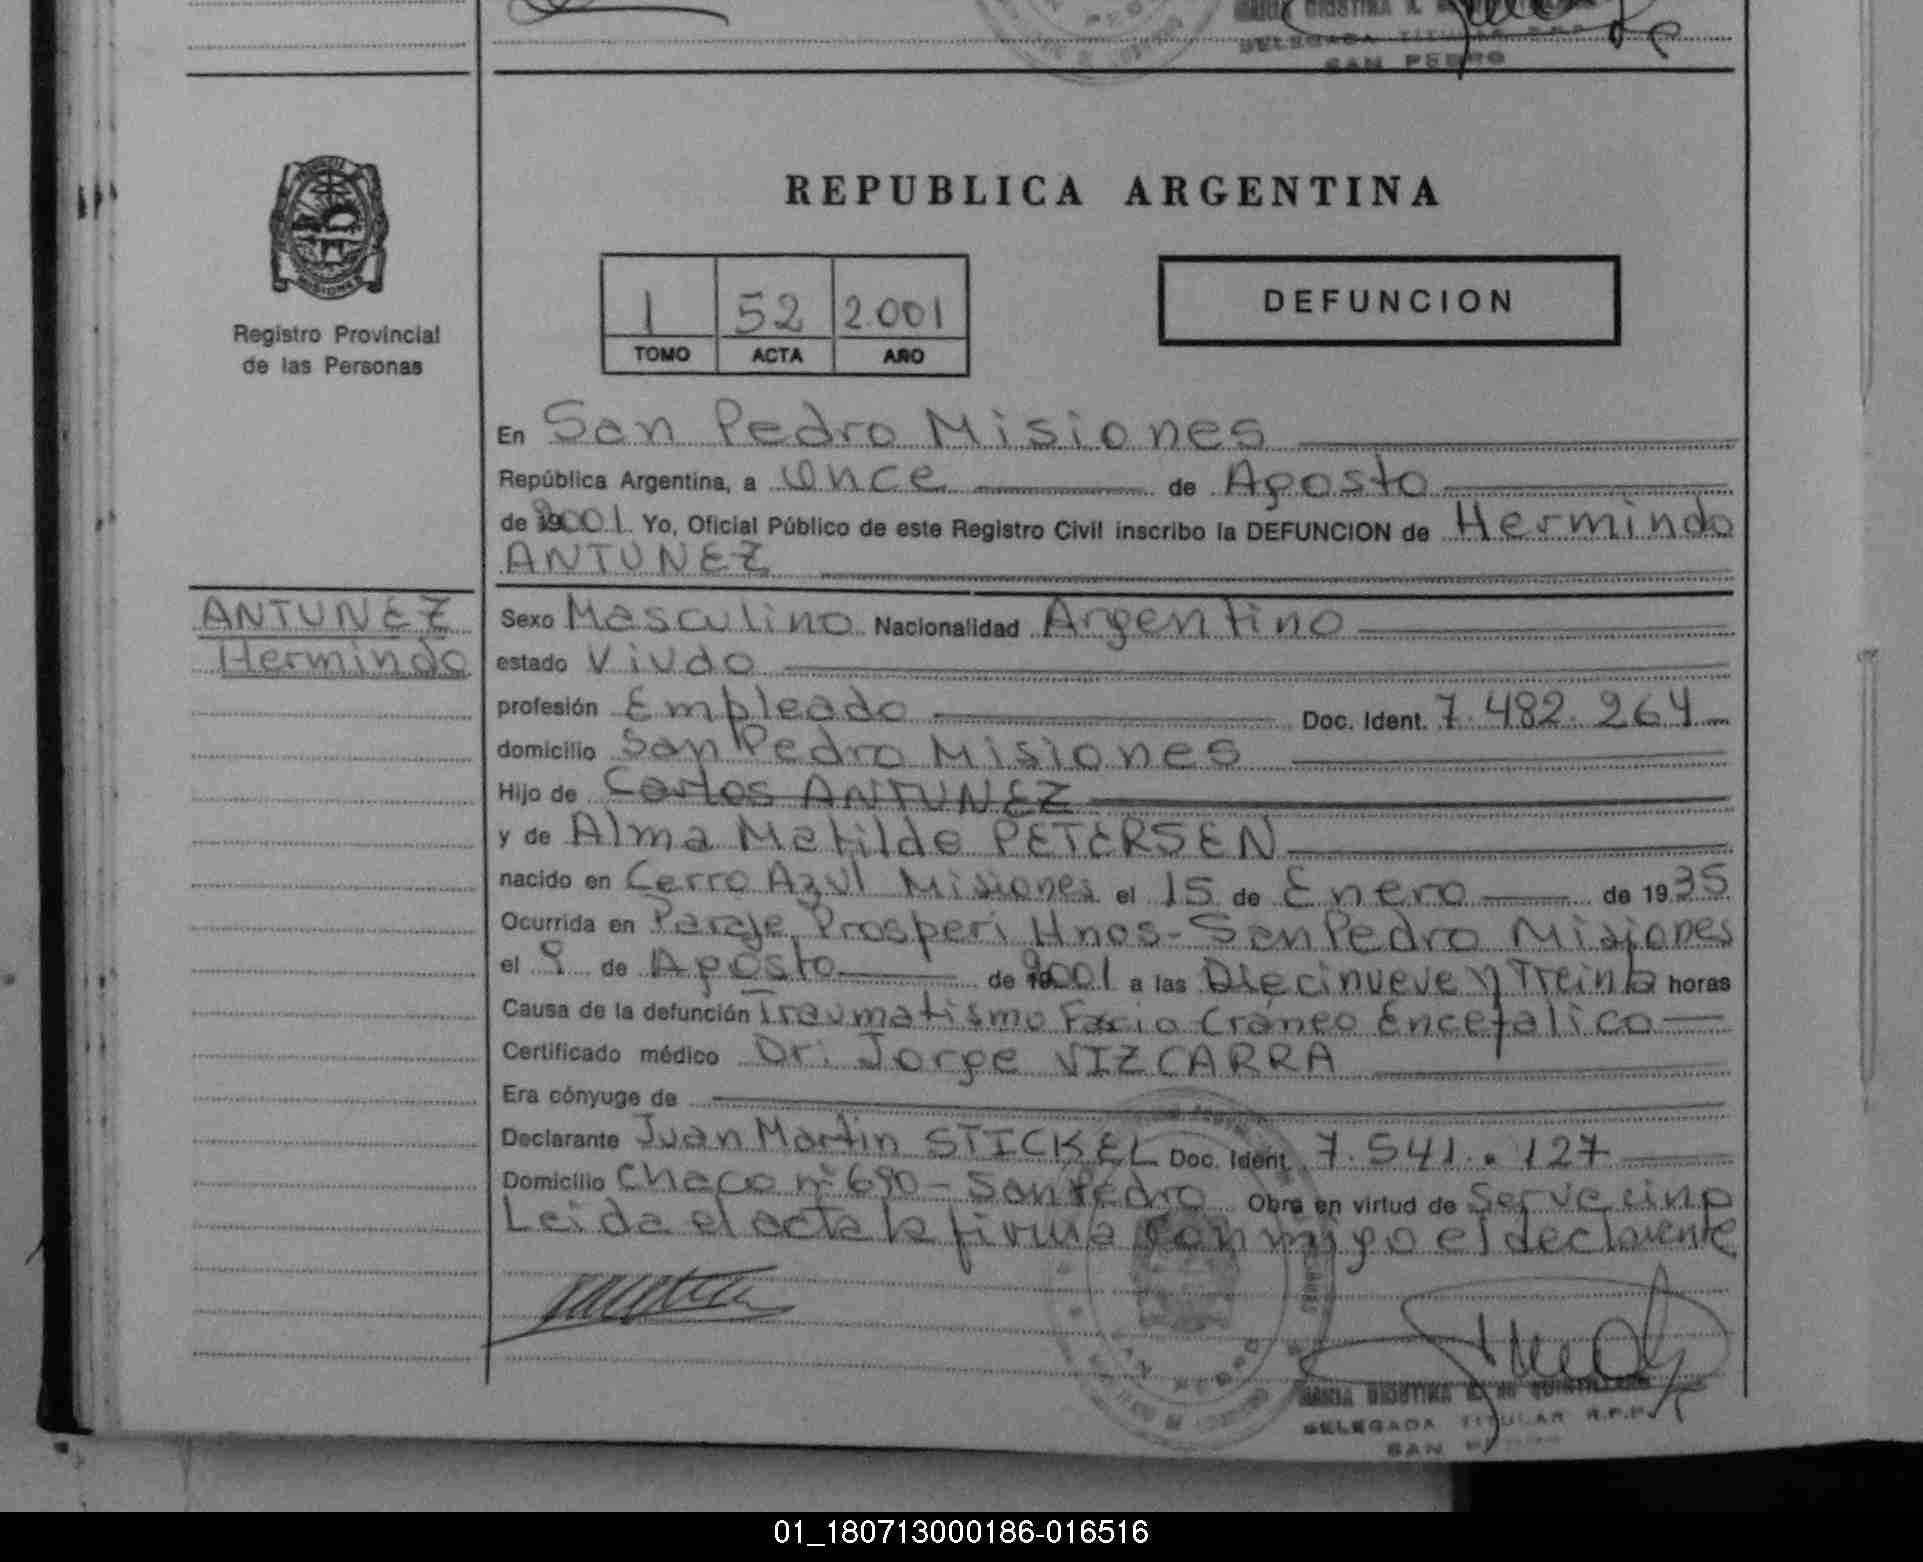 DELEGADA TITULAR R.P.P.
SAN PEDRO
MISIONES
Registro Provincial
de las Personas
REPUBLICA ARGENTINA
1 52 2.001
TOMO ACTA AÑO
DEFUNCION
En San Pedro Misiones
República Argentina, a Once de Agosto
de 2001 Yo, Oficial Público de este Registro Civil inscribo la DEFUNCION de Hermindo
ANTUNEZ
ANTUNEZ
Hermindo
Sexo Masculino Nacionalidad Argentino
estado Viudo
profesión Empleado Doc. Ident. 7.482.264
domicilio San Pedro Misiones
Hijo de Carlos ANTUNEZ
y de Alma Matilde PETERSEN
nacido en Cerro Azul Misiones el 15 de Enero de 1935
Ocurrida en Paraje Prosperi Hnos - San Pedro Misiones
el 9 de Agosto de 2001 a las Diecinueve y Treinta horas
Causa de la defunción Traumatismo Facio Cráneo Encefalico
Certificado médico Dr. Jorge VIZCARRA
Era cónyuge de
Declarante Juan Martin STICKEL Doc. Ident. 7.541.127
Domicilio Chaco nº 690 - San Pedro Obra en virtud de
Leida el acta la firma conmigo el declarante
DELEGADA TITULAR R.P.P.
SAN
01_180713000186-016516